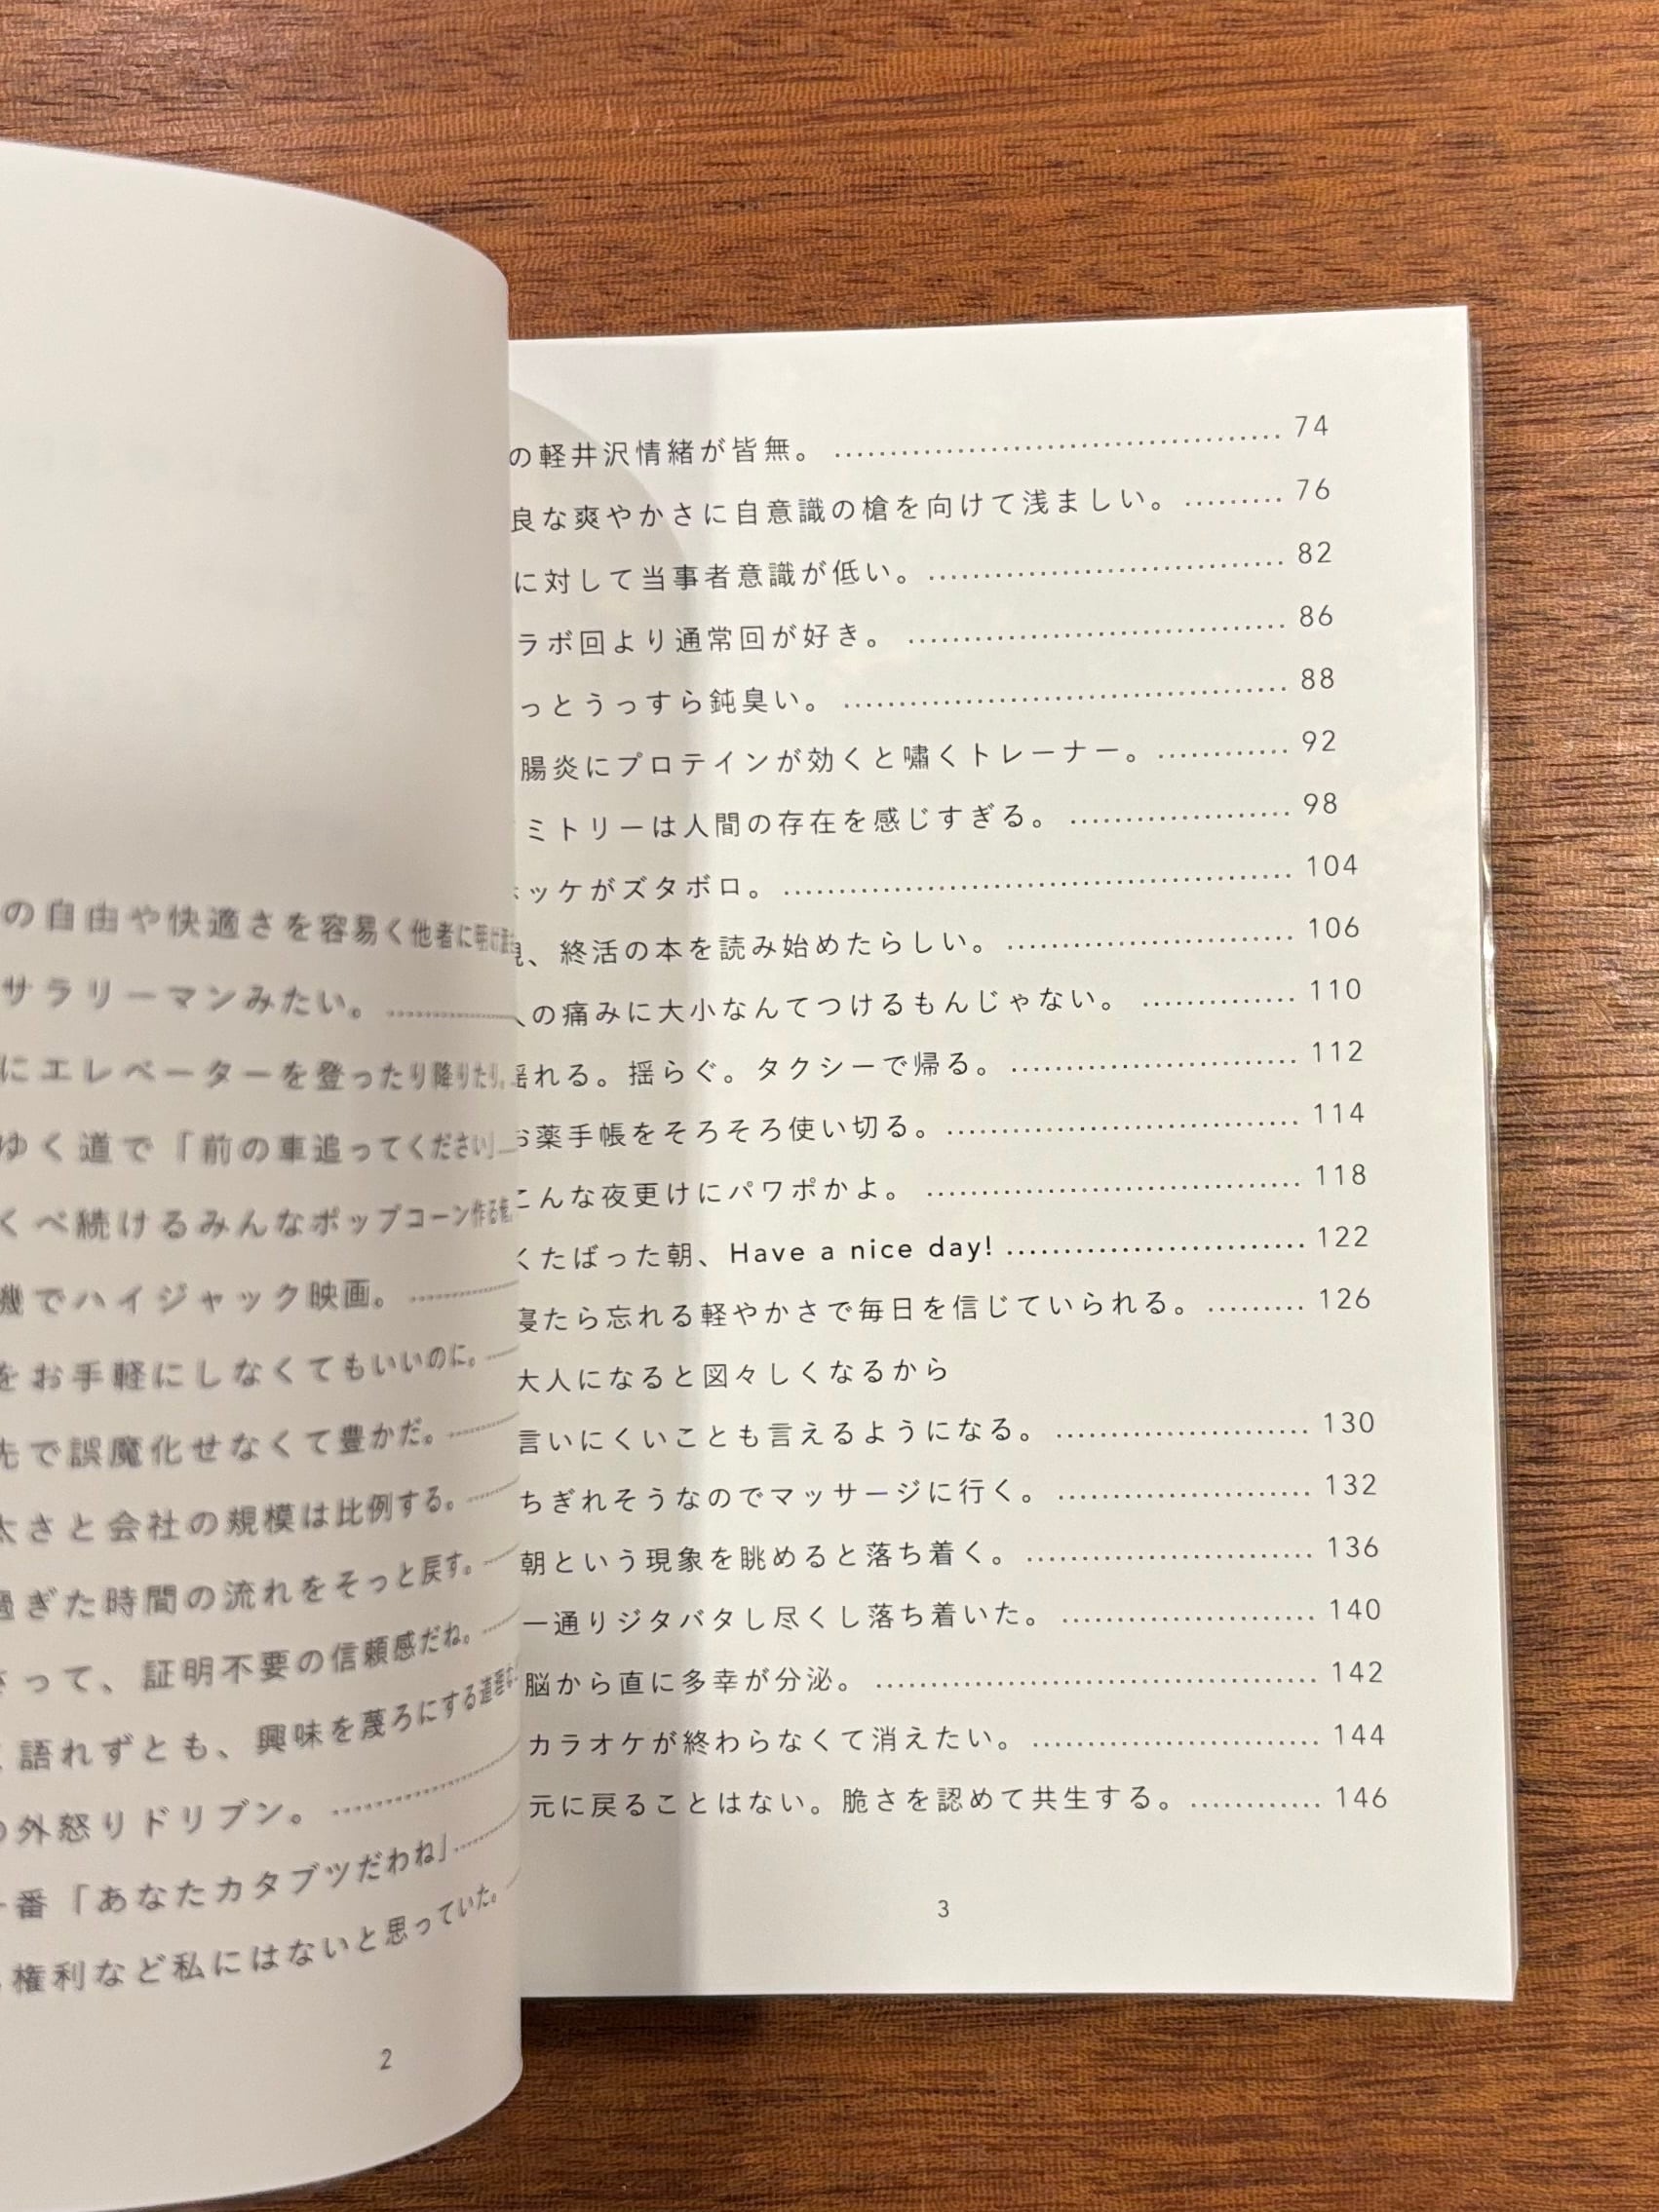 の自由や快適さを容易く他者に明け渡
サラリーマンみたい。
にエレベーターを登ったり降りたり。
ゆく道で「前の車追ってください」
くべ続けるみんなポップコーン作る
機でハイジャック映画。
をお手軽にしなくてもいいのに。
先で誤魔化せなくて豊かだ。
太さと会社の規模は比例する。
過ぎた時間の流れをそっと戻す。
さって、証明不要の信頼感だね。
語れずとも、興味を蔑ろにする道理な
の外怒りドリブン。
番「あなたカタブツだわね」
権利など私にはないと思っていた。
2
の軽井沢情緒が皆無。 74
良な爽やかさに自意識の槍を向けて浅ましい。 76
に対して当事者意識が低い。 82
ラボ回より通常回が好き。 86
っとうっすら鈍臭い。 88
腸炎にプロテインが効くと嘯くトレーナー。 92
ミトリーは人間の存在を感じすぎる。 98
ホッケがズタボロ。 104
、終活の本を読み始めたらしい。 106
人の痛みに大小なんてつけるもんじゃない。 110
揺れる。揺らぐ。タクシーで帰る。 112
お薬手帳をそろそろ使い切る。 114
こんな夜更けにパワポかよ。 118
くたばった朝、Have a nice day! 122
寝たら忘れる軽やかさで毎日を信じていられる。 126
大人になると図々しくなるから
言いにくいことも言えるようになる。 130
ちぎれそうなのでマッサージに行く。 132
朝という現象を眺めると落ち着く。 136
一通りジタバタし尽くし落ち着いた。 140
脳から直に多幸が分泌。 142
カラオケが終わらなくて消えたい。 144
元に戻ることはない。脆さを認めて共生する。 146
3